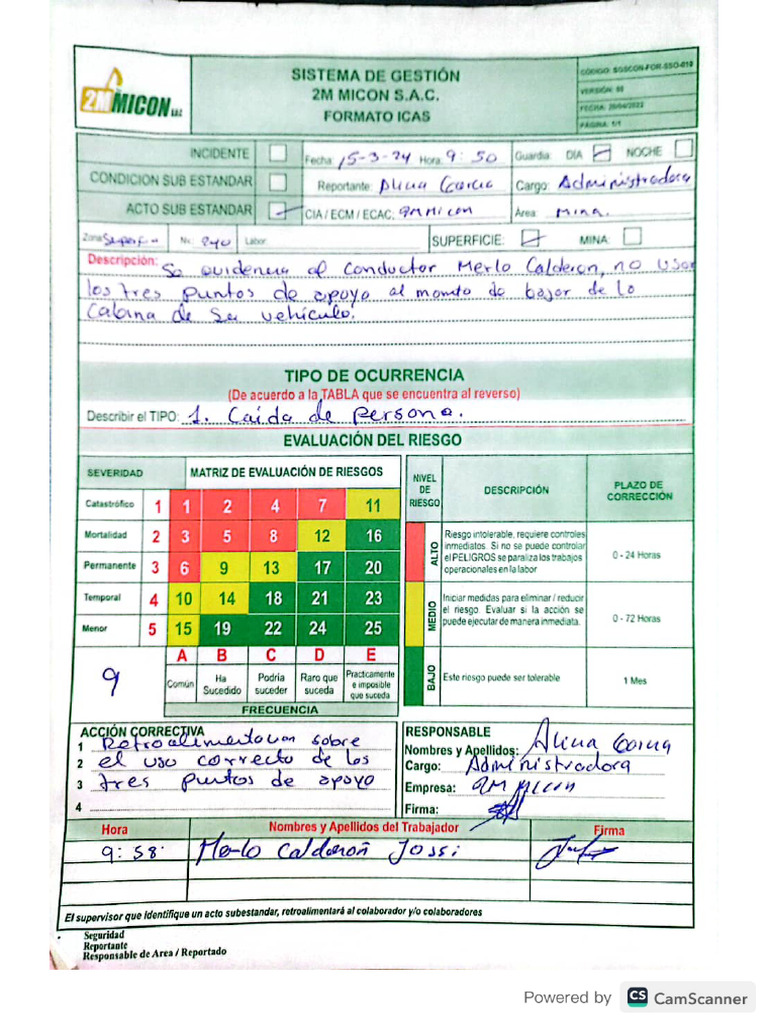 2M MICON S.A.C.
SISTEMA DE GESTIÓN
2M MICON S.A.C.
FORMATO ICAS
CÓDIGO: SGSCON-FOR-SSO-019
VERSIÓN: 00
FECHA: 20/04/2022
PÁGINA: 1/1
INCIDENTE Fecha: 15-3-24 Hora: 9:50 Guardia: DIA NOCHE
CONDICION SUB ESTANDAR Reportante: Alina Garcia Cargo: Administradora
ACTO SUB ESTANDAR CIA / ECM / ECAC: 2M Micon Área: Mina.
Zona: Nv. 240 Labor: SUPERFICIE: MINA:
Descripción: Se evidencia al conductor Merlo Calderon, no usar
los tres puntos de apoyo al momto de bajar de la
Cabina de su vehículo.
TIPO DE OCURRENCIA
(De acuerdo a la TABLA que se encuentra al reverso)
Describir el TIPO: 1. Caída de persona.
EVALUACIÓN DEL RIESGO
SEVERIDAD MATRIZ DE EVALUACIÓN DE RIESGOS
Catastrófico 1 1 2 4 7 11
Mortalidad 2 3 5 8 12 16
Permanente 3 6 9 13 17 20
Temporal 4 10 14 18 21 23
Menor 5 15 19 22 24 25
A B C D E
9
Común
Ha Sucedido
Podría suceder
Raro que suceda
Practicamente e imposible que suceda
FRECUENCIA
NIVEL DE RIESGO DESCRIPCIÓN PLAZO DE CORRECCIÓN
ALTO
Riesgo intolerable, requiere controles
inmediatos. Si no se puede controlar
el PELIGROS se paraliza los trabajos
operacionales en la labor
0 - 24 Horas
MEDIO
Iniciar medidas para eliminar / reducir
el riesgo. Evaluar si la acción se
puede ejecutar de manera inmediata.
0 - 72 Horas
BAJO
Este riesgo puede ser tolerable
1 Mes
ACCIÓN CORRECTIVA
1 Retroalimentacion sobre
2 el uso correcto de los
3 tres puntos de apoyo
4
RESPONSABLE
Nombres y Apellidos: Alina Garcia
Cargo: Administradora
Empresa: 2M Micon
Firma:
Hora Nombres y Apellidos del Trabajador Firma
9:58 Merlo Calderon Jossi
El supervisor que identifique un acto subestandar, retroalimentará al colaborador y/o colaboradores
Seguridad
Reportante
Responsable de Area / Reportado
Powered by CS CamScanner